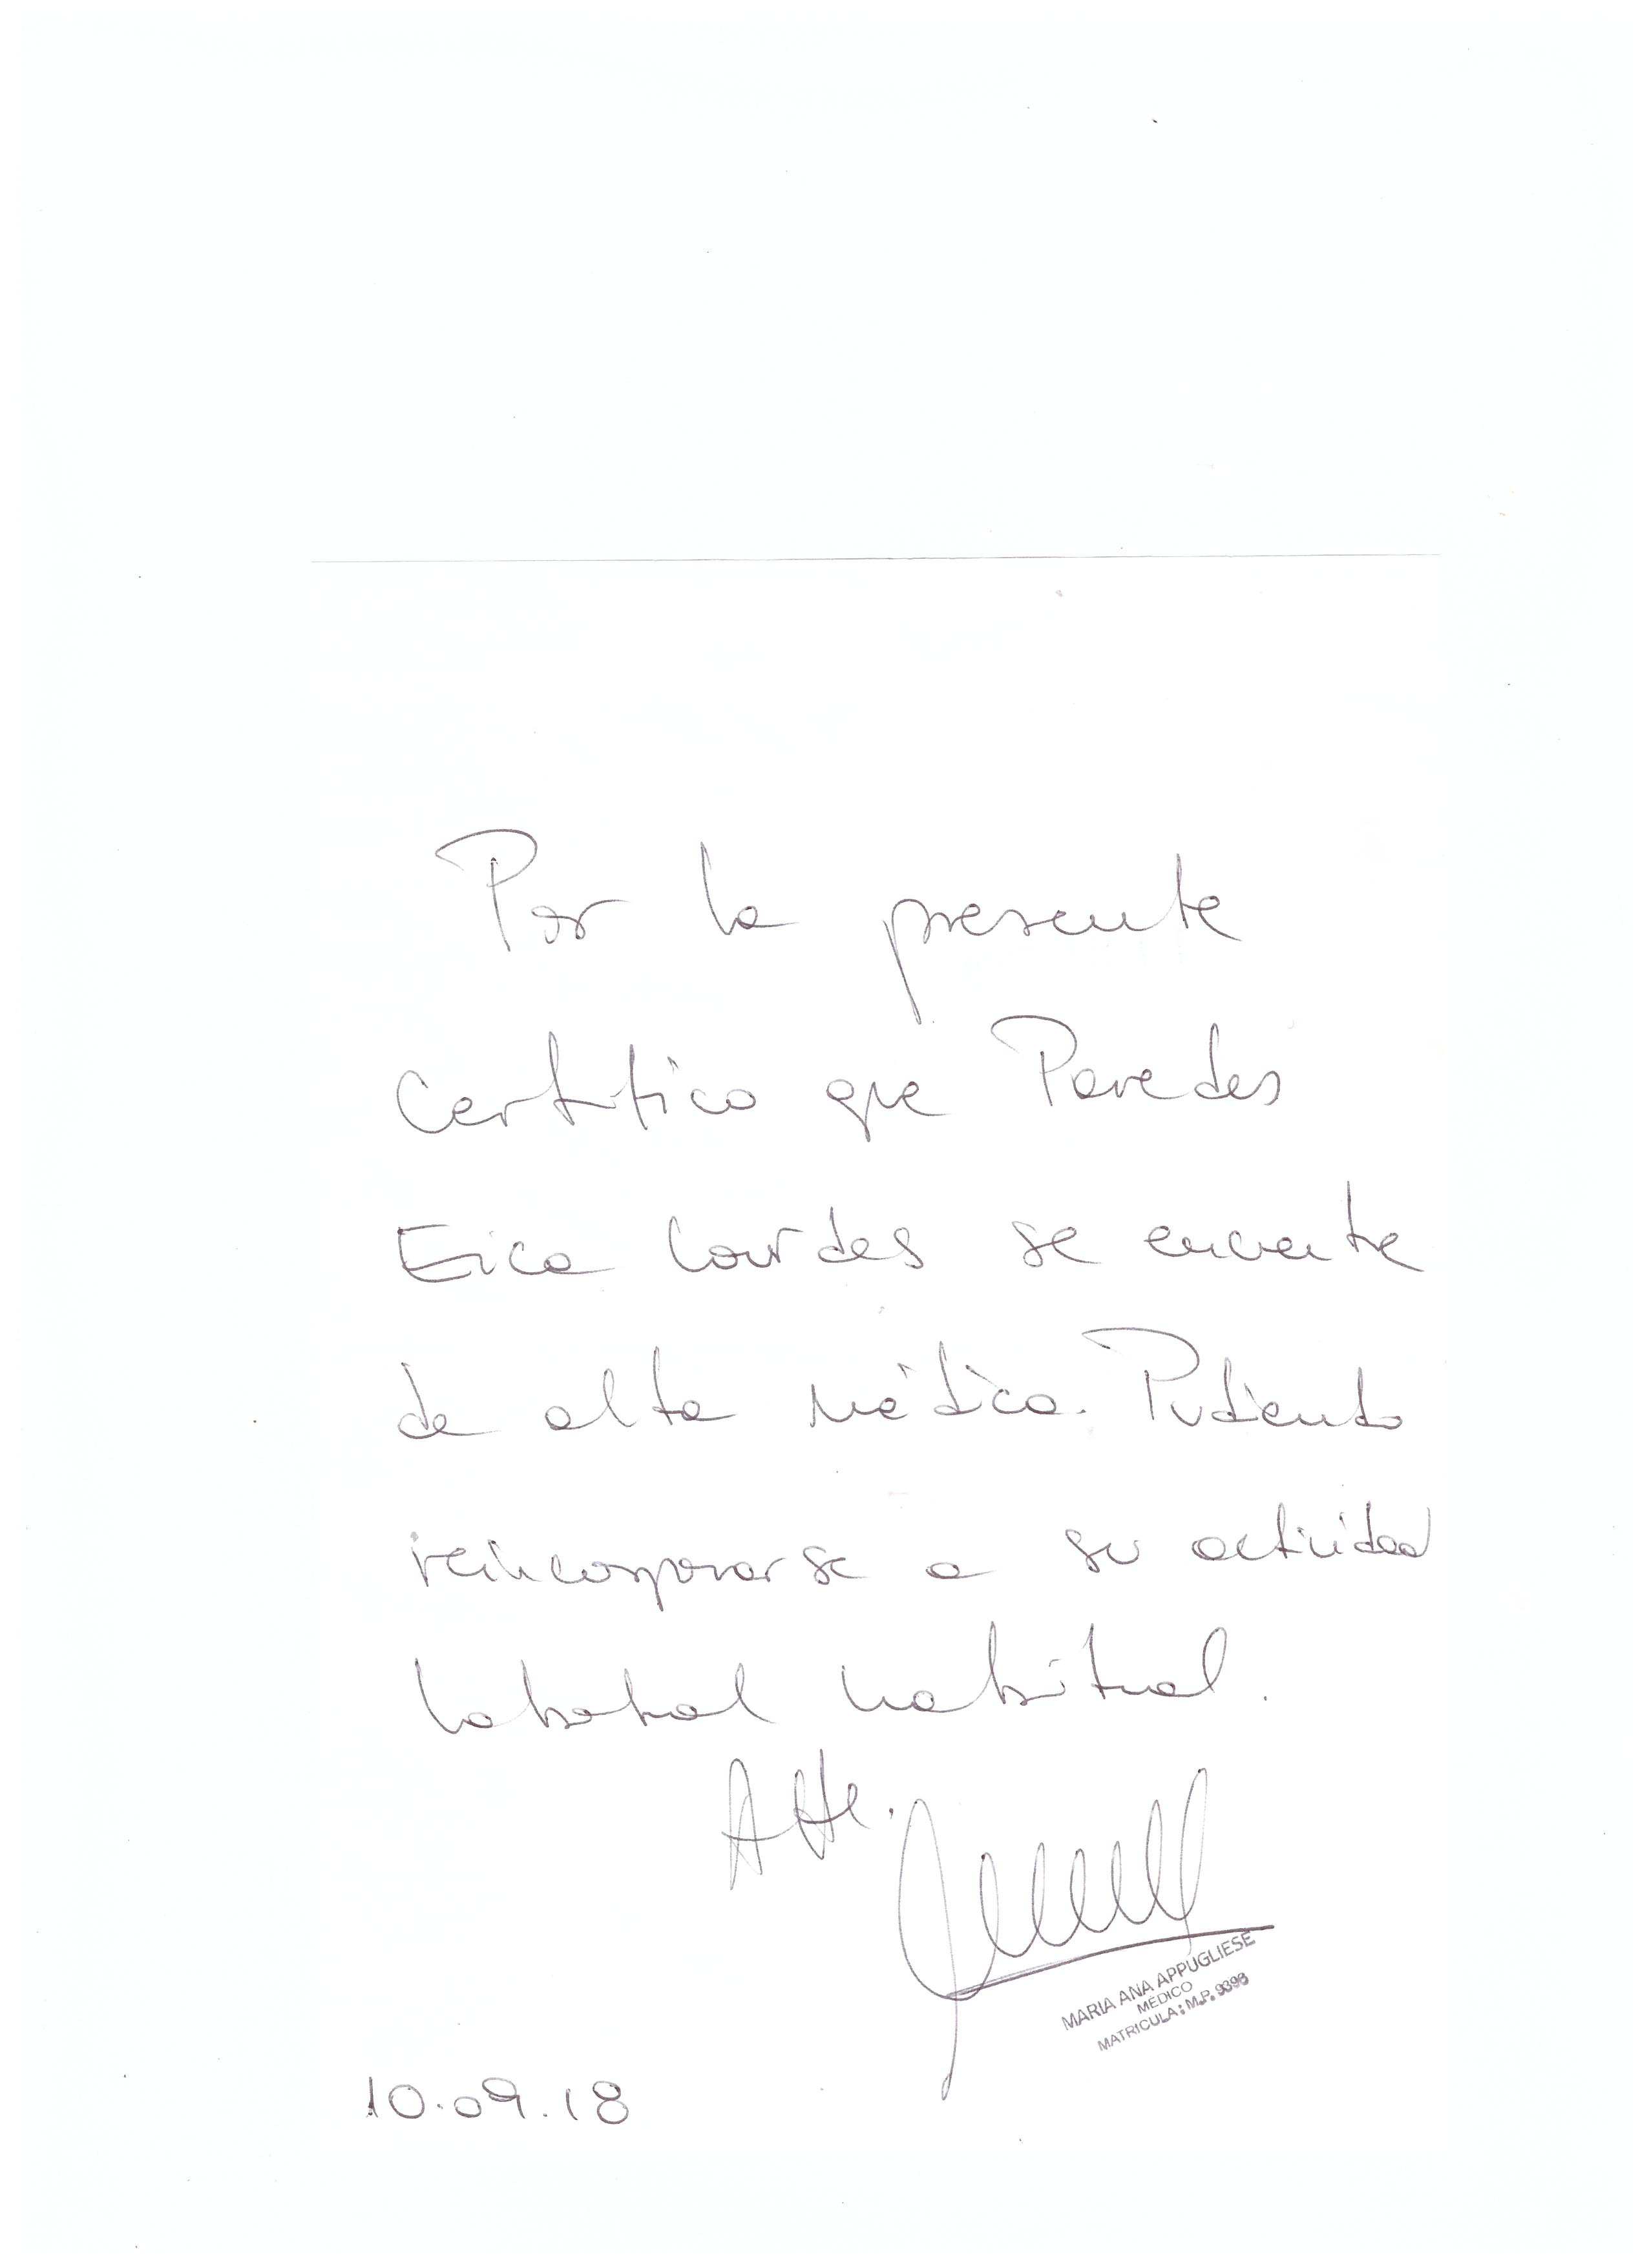 Por la presente
Certifico que Paredes
Erica Lourdes se encuentra
de alta médica. Pudiendo
reincorporarse a su actividad
laboral habitual.
Atte.
MARIA ANA APPUGLIESE
MÉDICO
MATRICULA: M.P. 9398
10.09.18